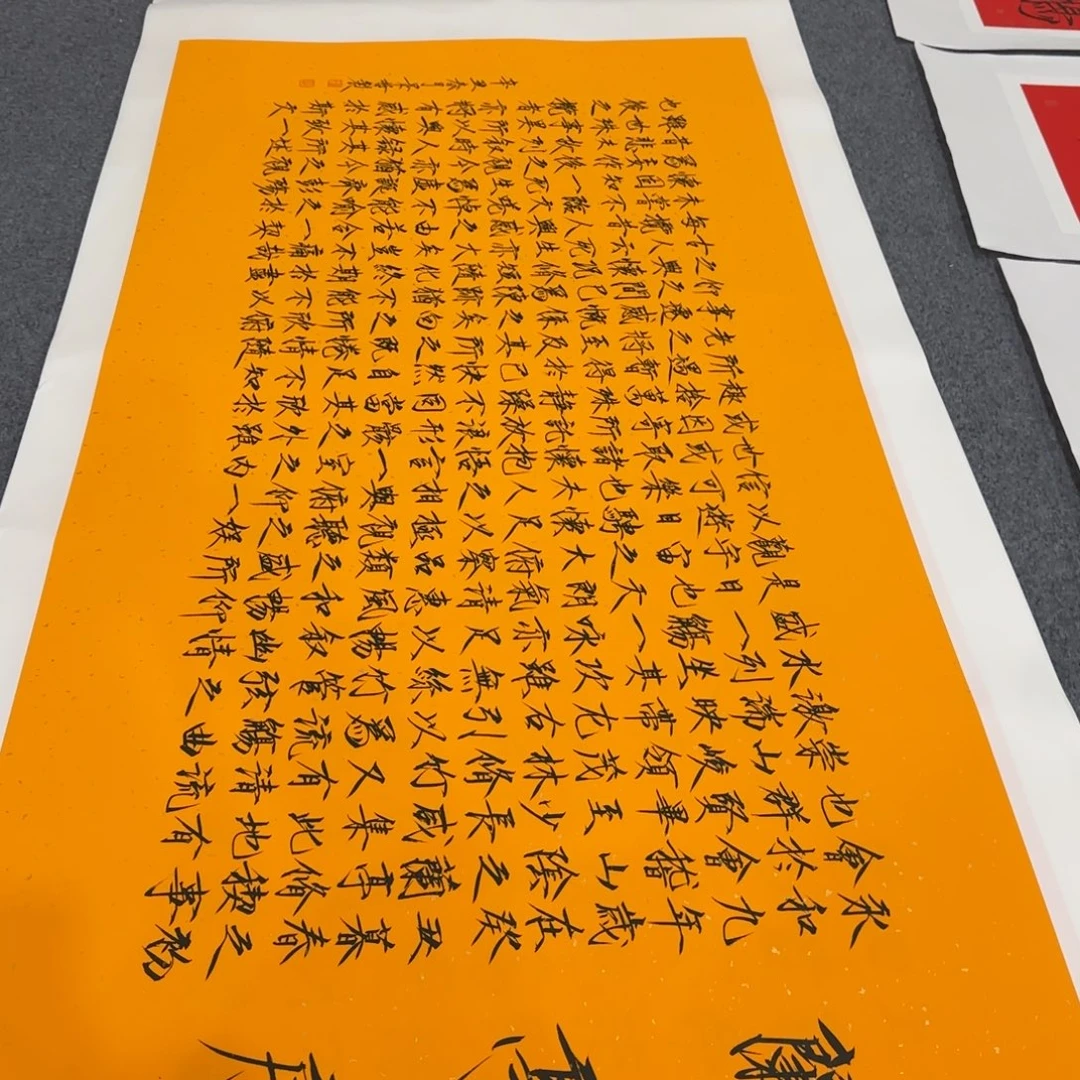 永和九年歲在癸丑暮春之初
會於會稽山陰之蘭亭脩稧事
也群賢畢至少長咸集此地有
崇山峻領茂林脩竹又有清流
激湍映帶左右引以為流觴曲
水列坐其次雖無絲竹管弦之
盛一觴一詠亦足以暢敘幽情
是日也天朗氣清惠風和暢仰
觀宇宙之大俯察品類之盛所
以遊目騁懷足以極視聽之娛
信可樂也夫人之相與俯仰一
世或取諸懷抱悟言一室之內
或因寄所託放浪形骸之外雖
趣捨萬殊靜躁不同當其欣於
所遇暫得於己快然自足不知
老之將至及其所之既惓情隨
事遷感慨係之矣向之所欣俯
仰之間已為陳跡猶不能不以
之興懷況脩短隨化終期於盡
古人云死生亦大矣豈不痛哉
每攬昔人興感之由若合一契
未嘗不臨文嗟悼不能喻之於
懷固知一死生為虛誕齊彭殤
為妄作後之視今亦由今之視
昔悲夫故列敘時人錄其所述
雖世殊事異所以興懷其致一
也後之攬者亦將有感於斯文
辛丑春月